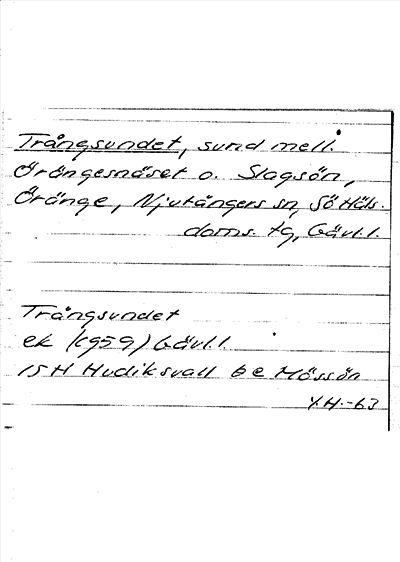 Trångsundet, sund mell.
Örängesnäset o. Slagsön,
Öränge, Njutångers sn, Sö Häls.
doms. tg, Gävl.l.
Trångsundet
ek (1959) Gävl.l.
15H Hudiksvall 6e Mössön
Y.H.-63